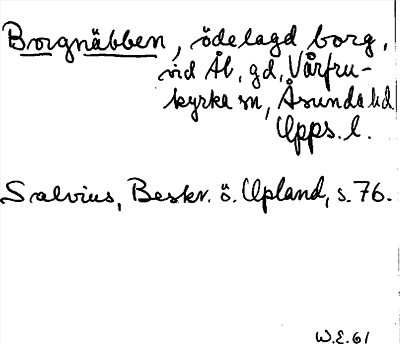 Borgnäbben, ödelagd borg,
vid Ål, gd, Vårfru-
kyrka sn, Åsunda hd
Upps. l.
Salvius, Beskr. ö. Upland, s. 76.
W.E. 61